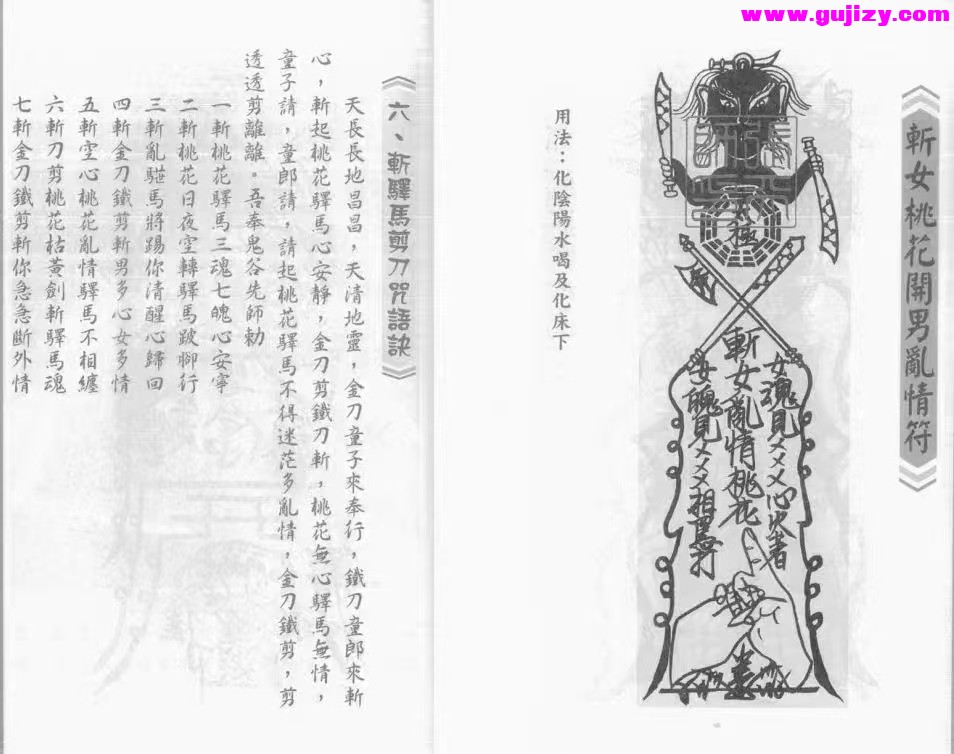 www.gujizy.com
斬女桃花開男亂情符
用法：化陰陽水喝及化床下
太極
女魂見㐅㐅㐅心火著
斬女亂情桃花
女魄見㐅㐅㐅相罵打
六、斬驛馬剪刀咒語訣
天長長地昌昌，天清地靈，金刀童子來奉行，鐵刀童郎來斬
心，斬起桃花驛馬心安靜，金刀剪鐵刀斬，桃花無心驛馬無情，
童子請，童郎請，請起桃花驛馬不得迷茫多亂情，金刀鐵剪，剪
透透剪離離。吾奉鬼谷先師勅
一斬桃花驛馬三魂七魄心安寧
二斬桃花日夜空轉驛馬跛腳行
三斬亂馬將踢你清醒心歸回
四斬金刀鐵剪斬男多心女多情
五斬空心桃花亂情驛馬不相纏
六斬刀剪桃花枯黃劍斬驛馬魂
七斬金刀鐵剪斬你急急斷外情